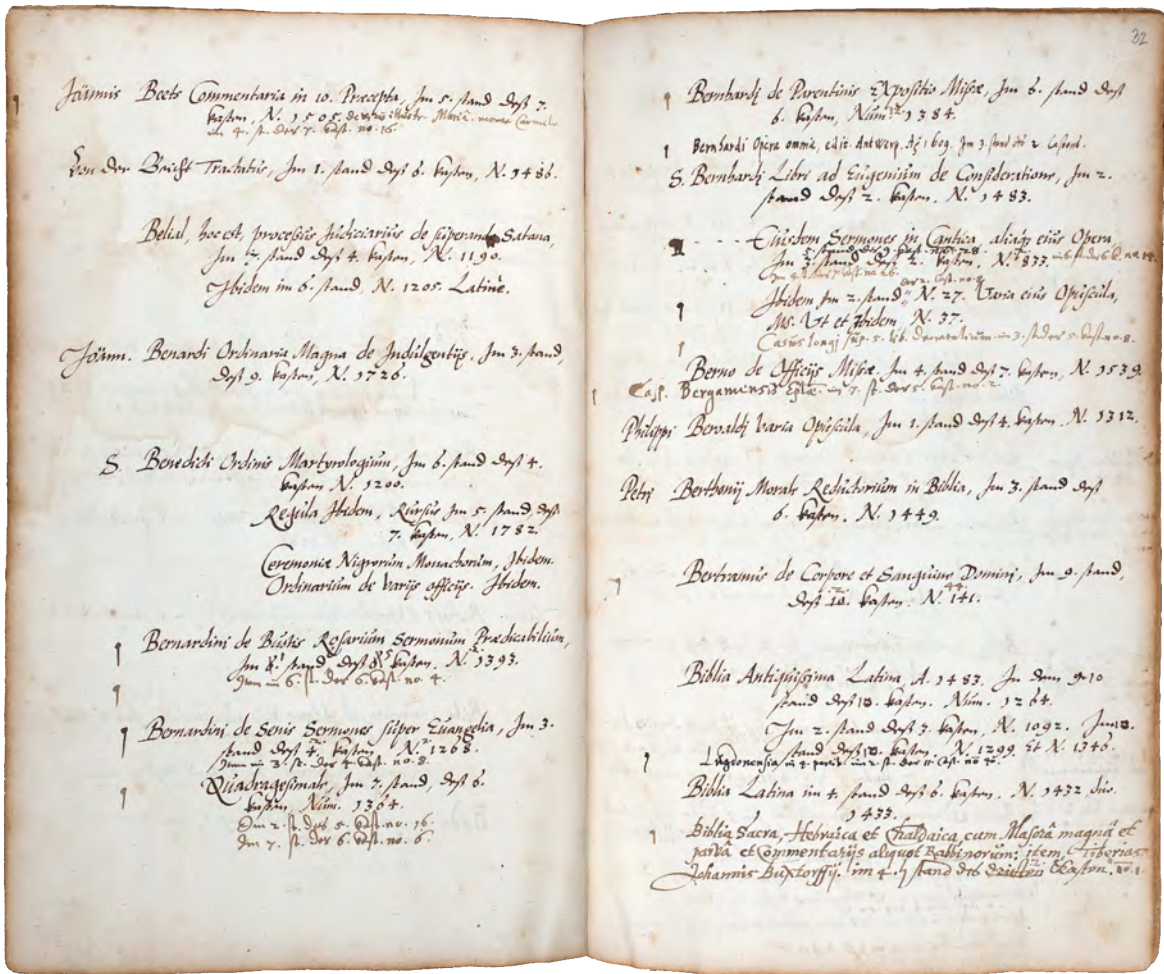 Joannis Beets Commentaria in 10. Præcepta, Im 5. stand deß 7.
kasten, N. 1505.
im 4. st. der 7. kast. no. 16.
Von der Beicht Tractatus, Im 1. stand deß 6. kasten, N. 1486.
Belial, hoc est, processus Judiciarius de superando Satana,
Im 7. stand deß 4. kasten, N. 1190.
Ibidem im 6. stand, N. 1205. Latinè.
Joann. Benardi Ordinaria Magna de Indulgentijs, Im 3. stand,
deß 9. kasten, N. 1726.
S. Benedicti Ordinis Martyrologium, Im 6. stand deß 4.
kasten N. 1200.
Regula Ibidem, Rursus Im 5. stand deß
7. kasten, N. 1782.
Ceremoniæ Nigrorum Monachorum, Ibidem.
Ordinarium de varijs officijs. Ibidem.
Bernardini de Bustis Rosarium Sermonum Prædicabilium,
Im stand deß kasten, N. 1393.
im 6. st. der 6. kast. no. 4.
Bernardini de Senis Sermones super Euangelia, Im 3.
stand deß 4. kasten, N. 1268.
im 3. st. der 4. kast. no. 8.
Quadragesimale, Im 7. stand, deß 6.
kasten, Num. 1364.
Im 2. st. des 5. kast. no. 16.
Im 7. st. des 6. kast. no. 6.
32
Bernhardj de Parentinis Expositio Missæ, Im 6. stand deß
6. kasten, Num. 1384.
Bernhardi Opera omnia, edit. Antwerp. Aº 1609. Im 3. stand des 2 Castens.
S. Bernhardj Libri ad Eugenium de Consideratione, Im 2.
stand deß 2. kasten. N. 1483.
Eiusdem Sermones in Cantica, aliaque eius Opera,
Im 3. stand deß 2. kasten, N. 1833.
Im 4. st. des 7. kast. no. 26.
Ibidem Im 2. stand, N. 27. Varia eius Opuscula,
Ms. Vt et Ibidem, N. 37.
Casus longi sup. 5. lib. decretalium im 3. st. der 5 kast. no. 8.
Berno de Officijs Missæ. Im 4. stand deß 7. kasten, N. 1539.
Casp. Bergamensis Eplæ. im 7. st. der 5. kast. no. 2.
Philippi Beroaldj Varia Opuscula, Im 1. stand deß 4. kasten, N. 1312.
Petri Berthorij Morale Reductorium in Biblia, Im 3. stand deß
6. kasten. N. 1449.
Bertramus de Corpore et Sanguine Dominj, Im 9. stand,
deß 10. kasten. N. 141.
Biblia Antiquissima Latina, A. 1483. In dem 9. 10
stand deß kasten. Num. 1264.
Im 2. stand deß 3. kasten, N. 1092. Im
stand deß kasten, N. 1299. Et N. 1346.
Lugdonensia in 4. partib. im 2. st. der
Biblia Latina im 4. stand deß 6. kasten. N. 1432 duo.
1433.
Biblia Sacra, Hebraica et Chaldaica, cum Masorâ magnâ et
parvâ et Commentarijs aliquot Rabbinorum; item, Tiberias
Johannis Buxtorffij. im 4. stand des dritten Kasten. no. 1.